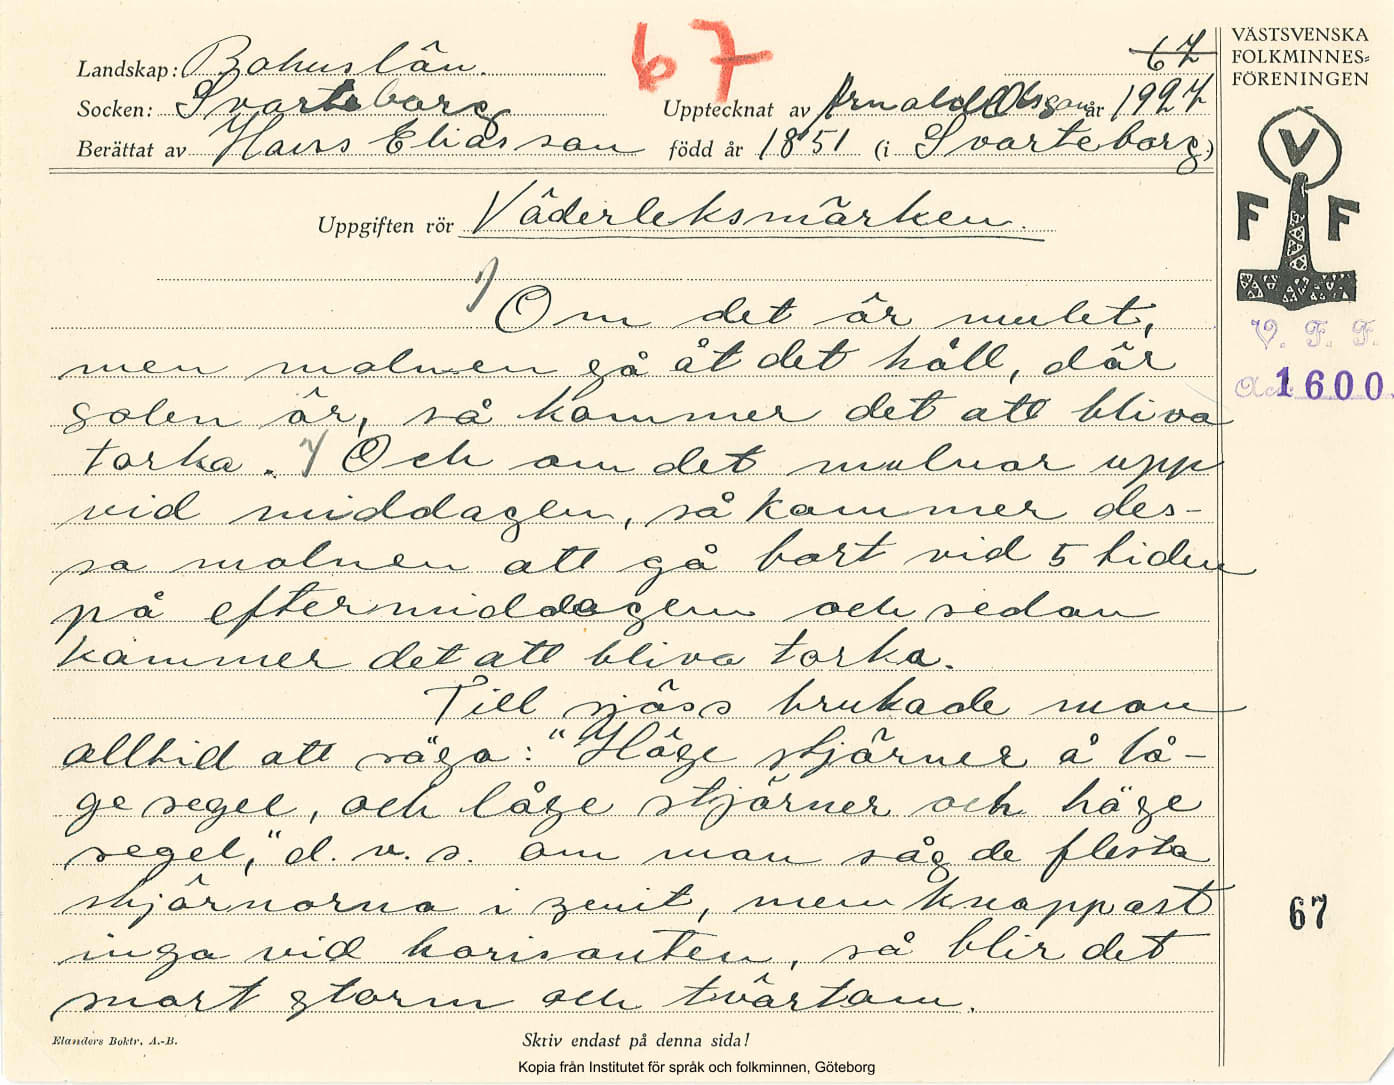 67
67
VÄSTSVENSKA
FOLKMINNES=
FÖRENINGEN
Landskap: Bohuslän.
Socken: Svarteborg
Upptecknat av Arnold Olsson år 1927
Berättat av Hans Eliasson född år 1851 (i Svarteborg)
V
F F
Uppgiften rör Väderleksmärken.
Om det är mulet,
men molnen gå åt det håll, där
solen är, så kommer det att bliva
torka. Och om det mulnar upp
vid middagen, så kommer des-
sa molnen att gå bort vid 5 tiden
på eftermiddagen och sedan
kommer det att bliva torka.
Till sjöss brukade man
alltid att säga: "Höge stjärner å lå-
ge segel, och låge stjärner och höge
segel," d. v. s. om man såg de flesta
stjärnorna i zenit, men knappast
inga vid horisonten, så blir det
snart storm och tvärtom.
V. F. F.
Acc. 1600.
67
Elanders Boktr. A.-B.
Skriv endast på denna sida!
Kopia från Institutet för språk och folkminnen, Göteborg